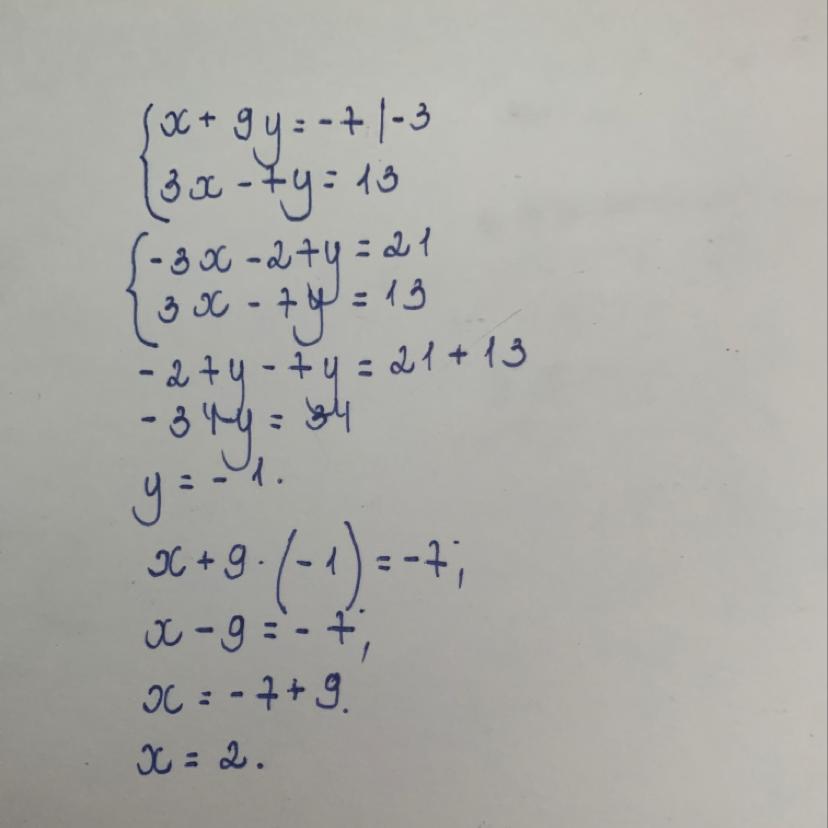 x + 9y = -7 | -3
3x - 7y = 13
-3x - 27y = 21
3x - 7y = 13
-27y - 7y = 21 + 13
-34y = 34
y = -1.
x + 9 · (-1) = -7;
x - 9 = -7;
x = -7 + 9.
x = 2.